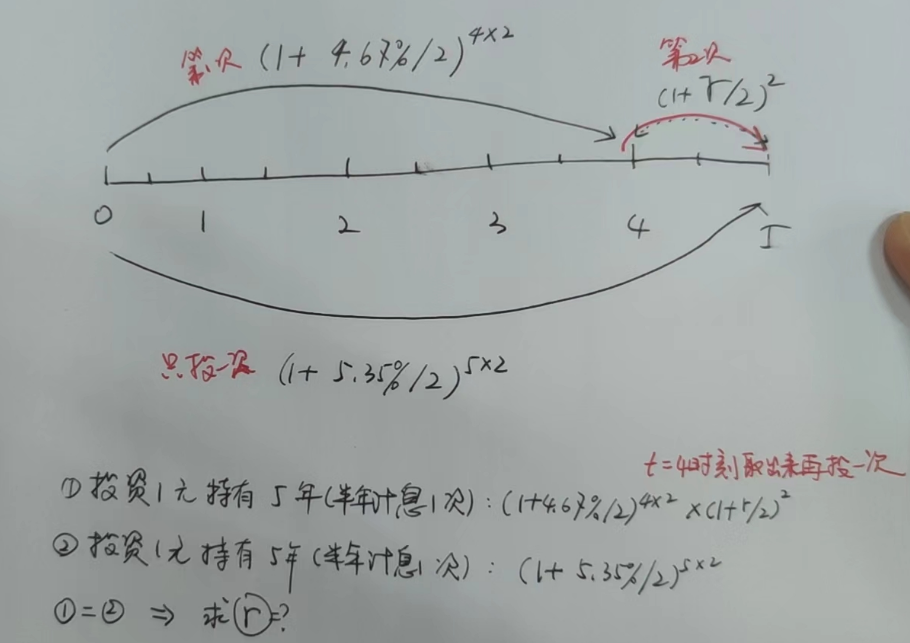 第1次 (1+ 4.67%/2)^{4×2}
第2次
(1+ r/2)^2
0 1 2 3 4 5
只投一次 (1+ 5.35%/2)^{5×2}
t=4时刻取出来再投一次
①投资1元持有5年(半年计息1次):(1+4.67%/2)^{4×2} ×(1+r/2)^2
②投资1元持有5年(半年计息1次): (1+ 5.35%/2)^{5×2}
①=② ⇒ 求r=?